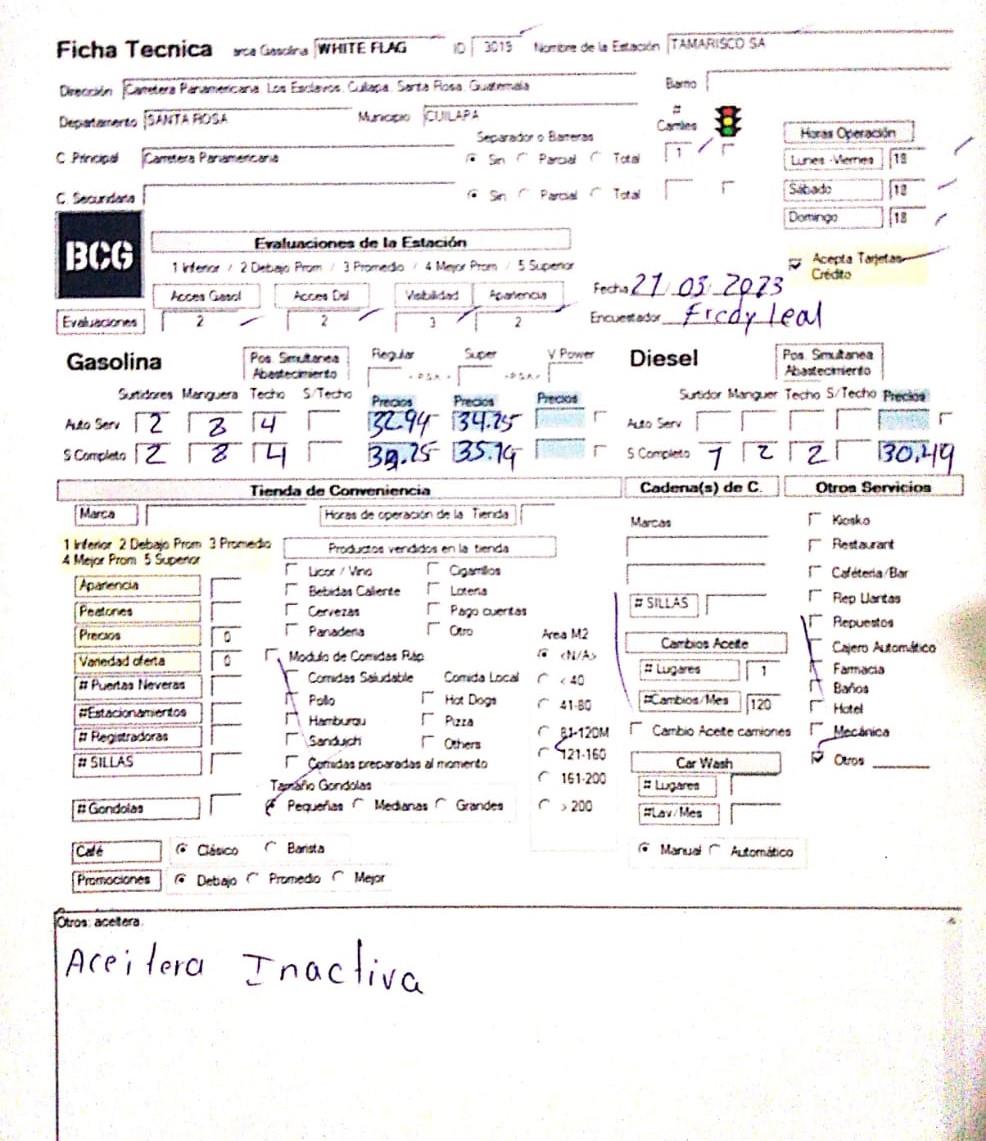 Ficha Tecnica arca Gasolina WHITE FLAG ID 3019 Nombre de la Estación TAMARISCO SA
Dirección Carretera Panamericana, Los Esclavos, Cuilapa, Santa Rosa, Guatemala Barrio
Departamento SANTA ROSA Municipio CUILAPA # Carriles
Separador o Barreras Horas Operación
C. Principal Carretera Panamericana Sin Parcial Total 1 Lunes -Viernes 18
C. Secundaria Sin Parcial Total Sábado 18
Domingo 18
BCG Evaluaciones de la Estación
1 Inferior / 2 Debajo Prom / 3 Promedio / 4 Mejor Prom / 5 Superior Acepta Tarjetas Crédito
Acces Gasol Acces Dsl Visibilidad Apariencia Fecha 27 03 2023
Evaluaciones 2 2 3 2 Encuestador Fredy leal
Gasolina Pos. Simultanea Abastecimiento Regular Super V Power Diesel Pos. Simultanea Abastecimiento
Surtidores Manguera Techo S/Techo Precios Precios Precios Surtidor Manguer Techo S/Techo Precios
Auto Serv 2 8 4 32.94 34.25 Auto Serv
S Completo 2 8 4 35.14 S Completo 1 2 2 30.49
Tienda de Conveniencia Cadena(s) de C. Otros Servicios
Marca Horas de operación de la Tienda Marcas Kiosko
1 Inferior 2 Debajo Prom 3 Promedio Productos vendidos en la tienda Restaurant
4 Mejor Prom 5 Superior Licor / Vino Cigarrillos Cafétería/Bar
Apariencia Bebidas Caliente Loteria # SILLAS Rep Llantas
Peatones Cervezas Pago cuentas Repuestos
Precios 0 Panaderia Otro Area M2 Cambios Aceite Cajero Automático
Variedad oferta 0 Modulo de Comidas Ráp. <N/A> # Lugares 1 Farmacia
# Puertas Neveras Comidas Saludable Comida Local < 40 Baños
#Estacionamientos Pollo Hot Dogs 41-80 #Cambios/Mes 120 Hotel
# Registradoras Hamburgu Pizza 81-120M Cambio Aceite camiones Mecánica
# SILLAS Sanduich Others 121-160 Car Wash Otros
Comidas preparadas al momento 161-200 # Lugares
Tamaño Gondolas
# Gondolas Pequeñas Medianas Grandes > 200 #Lav/Mes
Café Clásico Barista Manual Automático
Promociones Debajo Promedio Mejor
Otros: aceitera.
Aceitera Inactiva